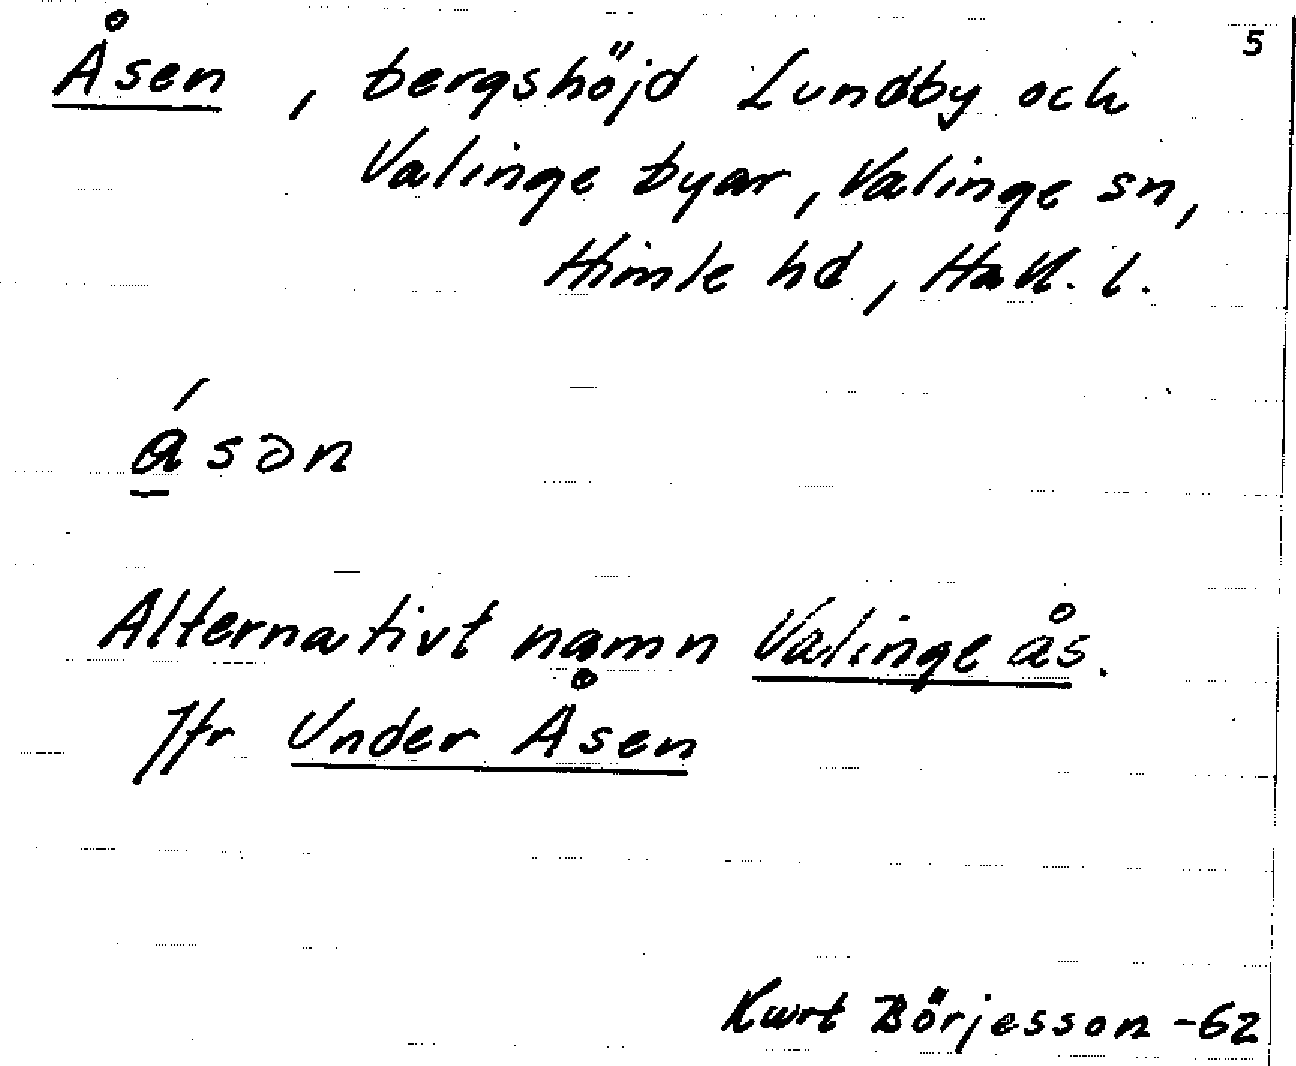 5
Åsen, bergshöjd Lundby och
Valinge byar, Valinge sn,
Himle hd, Hall. l.
á̱sən
Alternativt namn Valinge ås.
Jfr Under Åsen
Kurt Börjesson -62